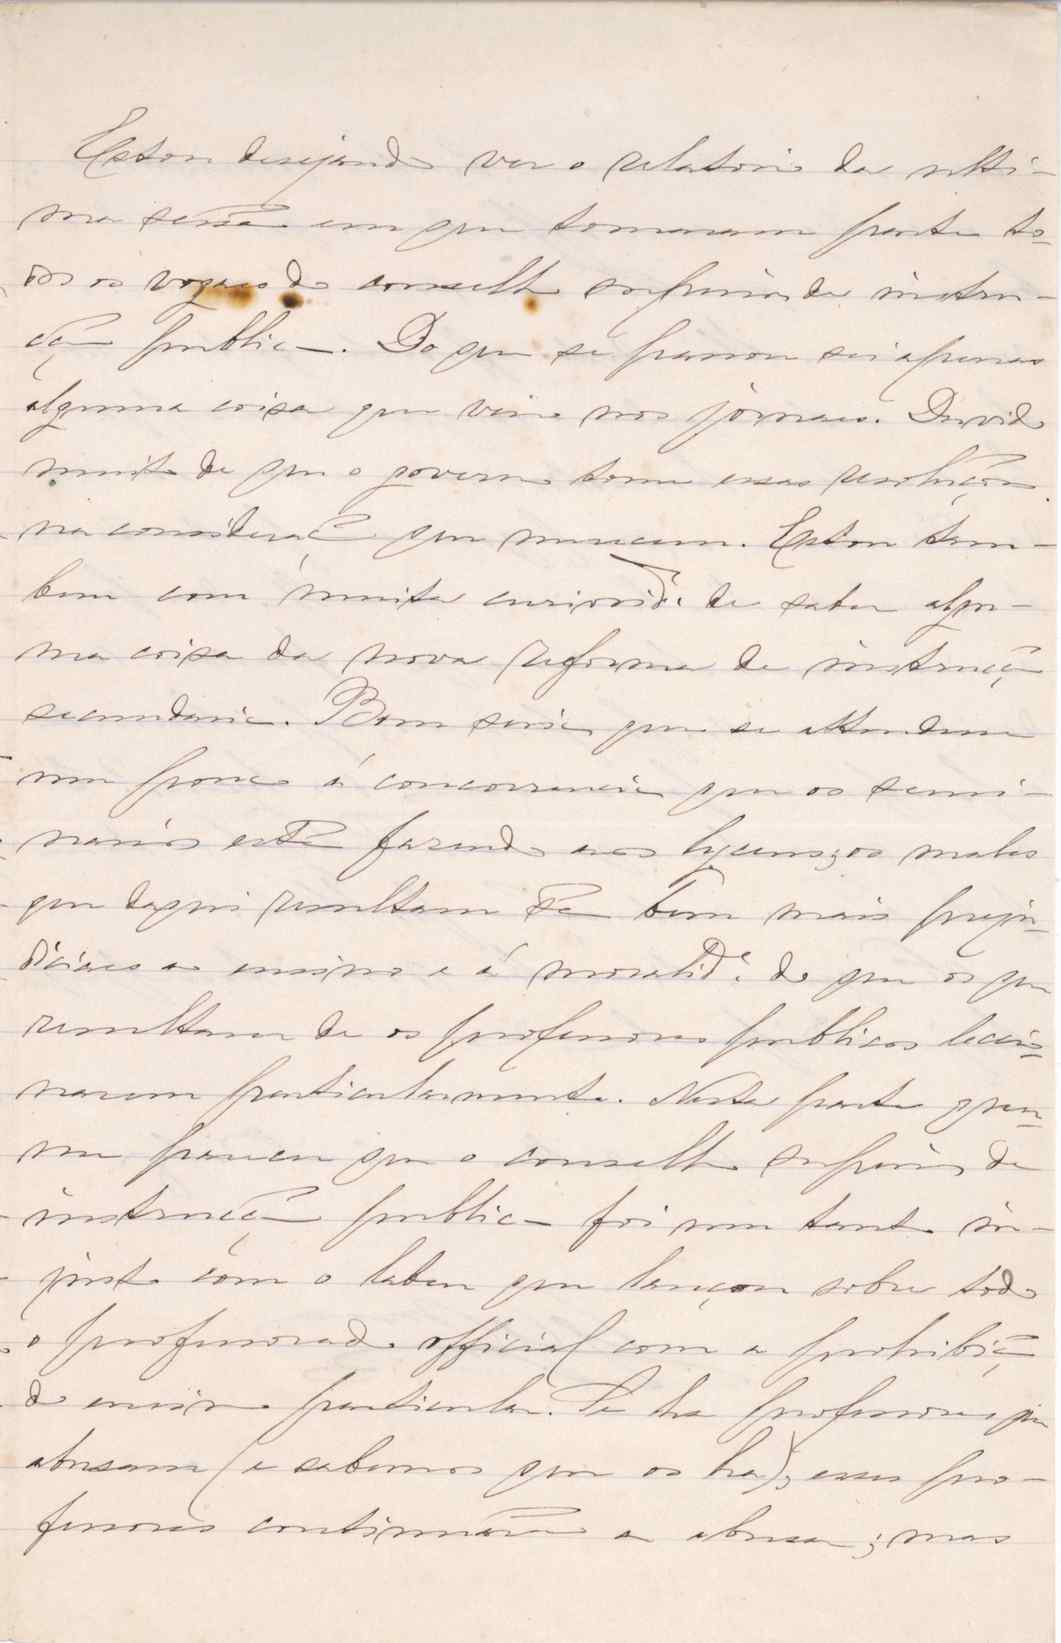 Estou desejando ver o relatorio da ulti-
ma sessão em que tomaram parte to-
dos os vogaes do conselho superior de instru-
cção publica. Do que se passou sei apenas
alguma coisa que veio nos jornaes. Duvido
muito de que o governo tome essas resoluções
na consideração que merecem. Estou tam-
bem com muita curiosid.e de saber algu-
ma coisa da nova reforma de instrucção
secundaria. Bom seria que se attendesse
um pouco á concorrencia que os semi-
narios estão fazendo aos lyceus; os males
que daqui resultam são bem mais preju-
diciaes ao ensino e á moralid.e do que os que
resultam de os professores publicos leccio-
narem particularmente. Nesta parte quer-
me parecer que o conselho superior de
instrucção publica foi um tanto in-
justo com o labeu que lançou sobre todo
o professorado official com a prohibição
do ensino particular. Se ha professores que
abusam (e sabemos que os ha), esses pro-
fessores continuarão a abusar; mas